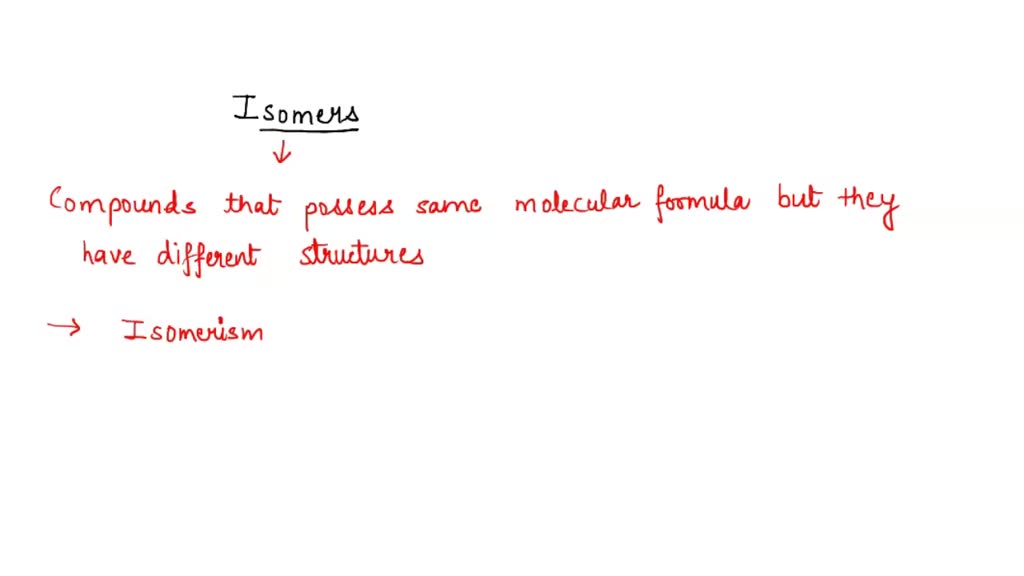 Isomers
↓
Compounds that possess same molecular formula but they
have different structures
→ Isomerism